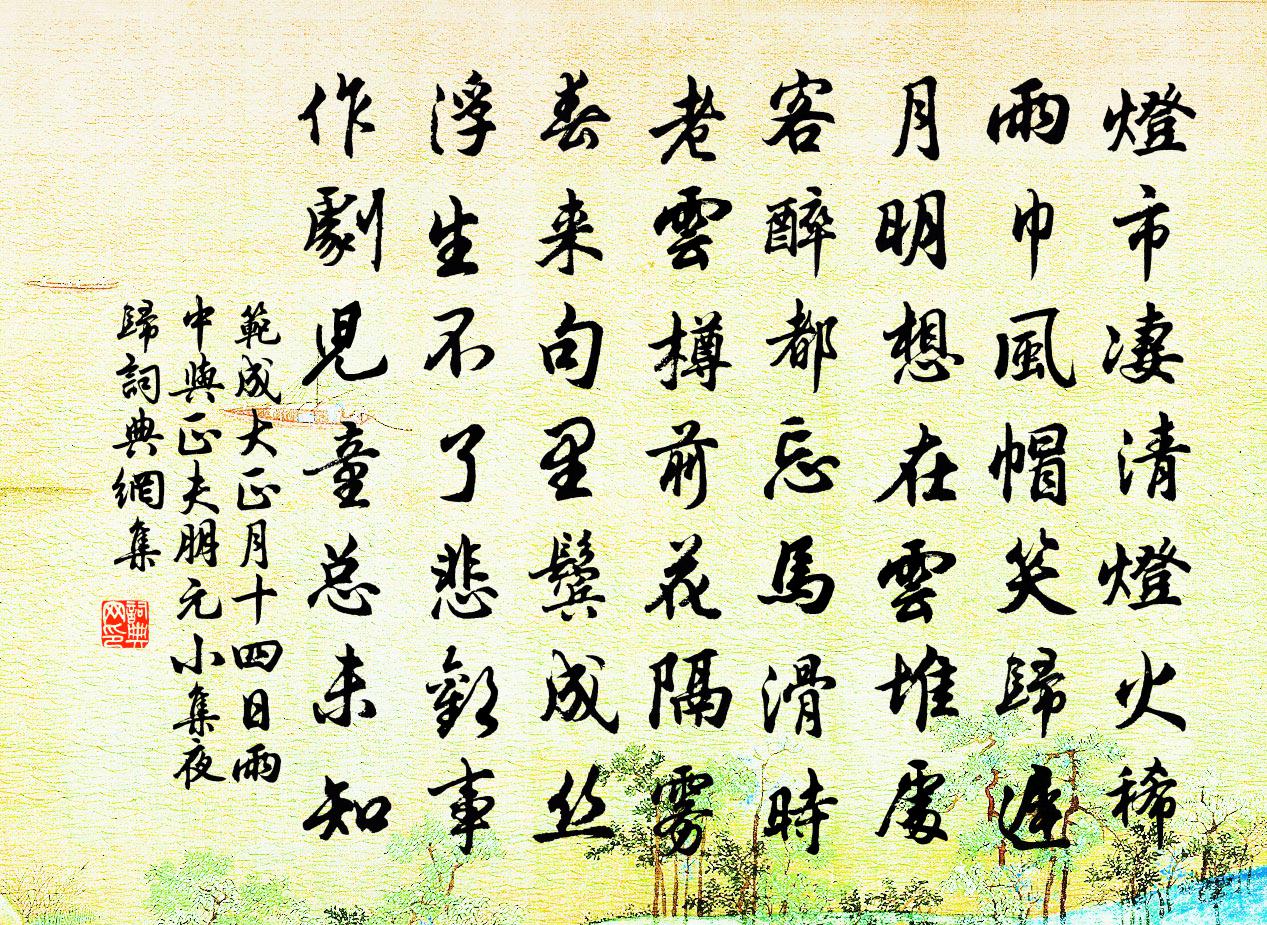 燈市凄清燈火稀
雨巾風帽笑歸遲
月明想在雲堆處
客醉都忘馬滑時
老雲樽前花隔雾
春来句里鬢成丝
浮生不了悲歡事
作劇児童总未知
範成大正月十四日雨
中與正夫朋元小集夜
歸詞典網集
詞典
网印